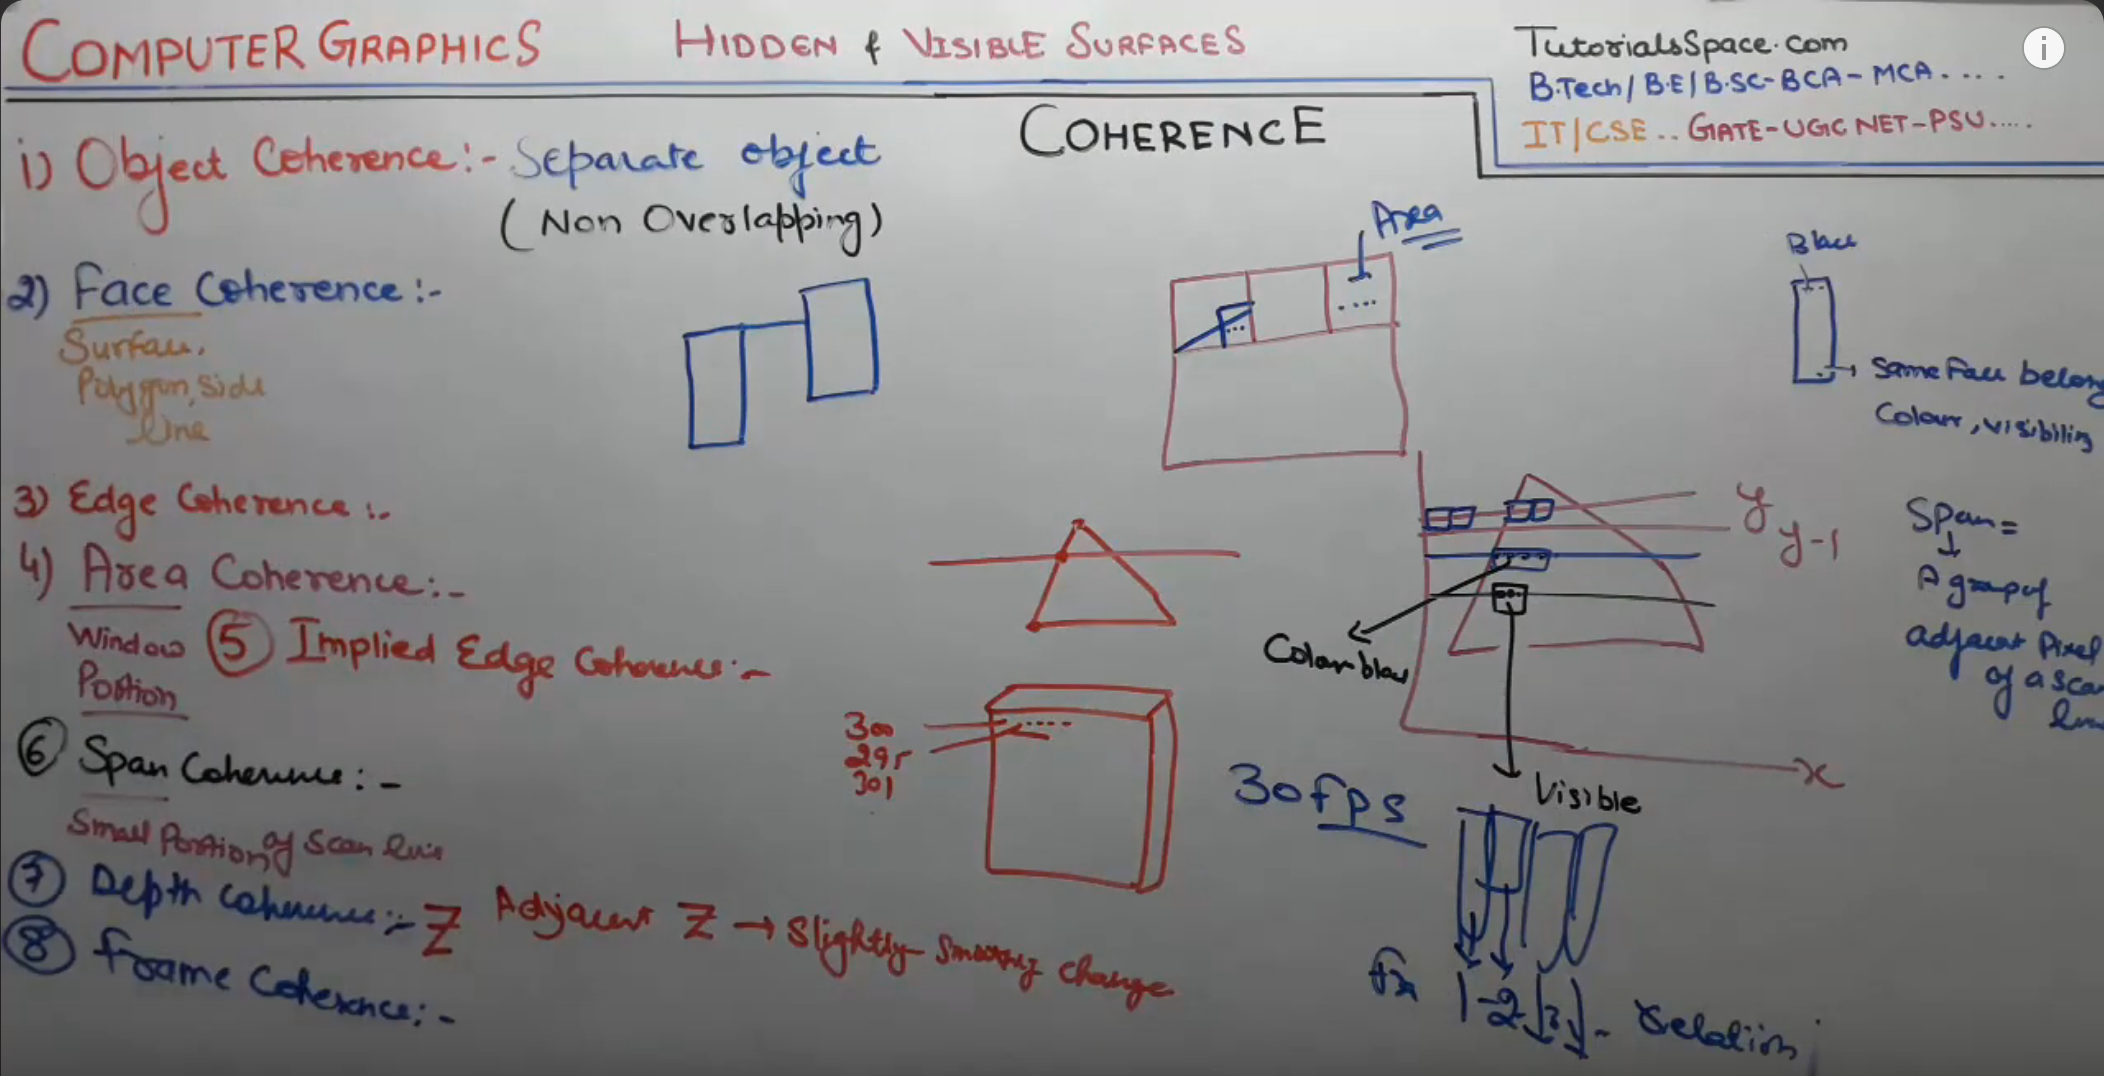 COMPUTER GRAPHICS
HIDDEN & VISIBLE SURFACES
TutorialsSpace.com
B.Tech/B.E/B.SC-BCA-MCA....
IT/CSE.. GATE-UGC NET-PSU.....
COHERENCE
1) Object Coherence:- Separate object
(Non Overlapping)
2) Face Coherence:-
Surface,
Polygon, side
line
3) Edge Coherence:-
4) Area Coherence:-
Window
Portion
5 Implied Edge Coherence:-
6 Span Coherence:-
Small Portion of scan line
7 Depth Coherence:- Z Adjacent Z → Slightly Smoothly change
8 Frame Coherence:-
Area
Black
Same Face belong
Colour, visibility
y
y-1
Span=
A group of
adjacent Pixel
of a scan
line
Colour black
x
Visible
300
295
301
30 fps
1-2 3 - relation